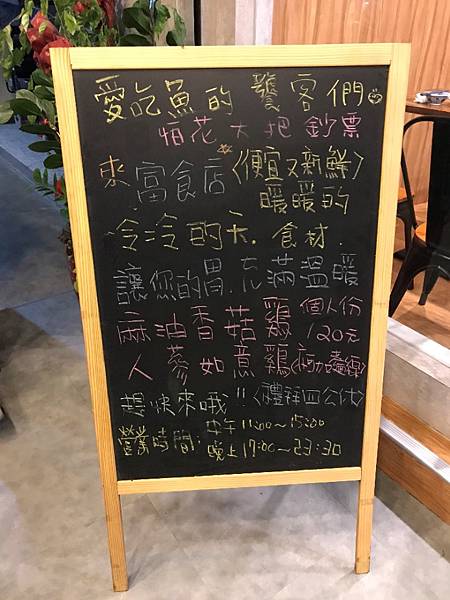 愛吃魚的饕客們
怕花大把鈔票
來.富食店<便宜又新鮮>
暖暖的
冷冷的天.食材.
讓您的胃.充滿溫暖
麻油香菇鷄 個人份
120元
人蔘如意鷄<可加麵線>
趕快來哦!!
營業時間:中午11:00~15:00
晚上17:00~23:30